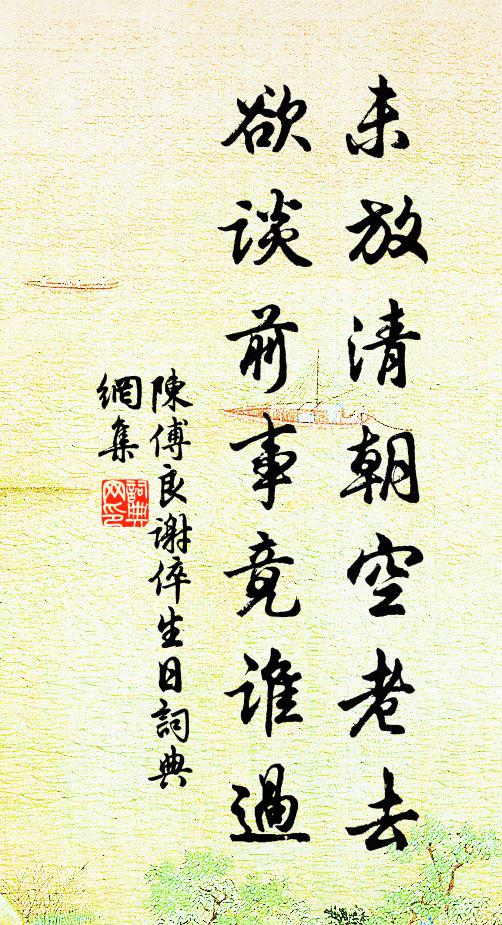 未放清朝空老去
欲談前事竟誰過
陳傅良謝倅生日詞典
網集
詞典网印